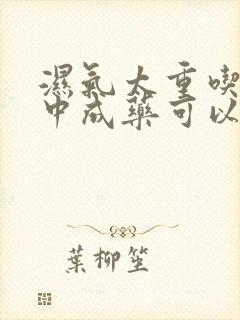 濕氣太重喫
中成藥可以
葉柳笙